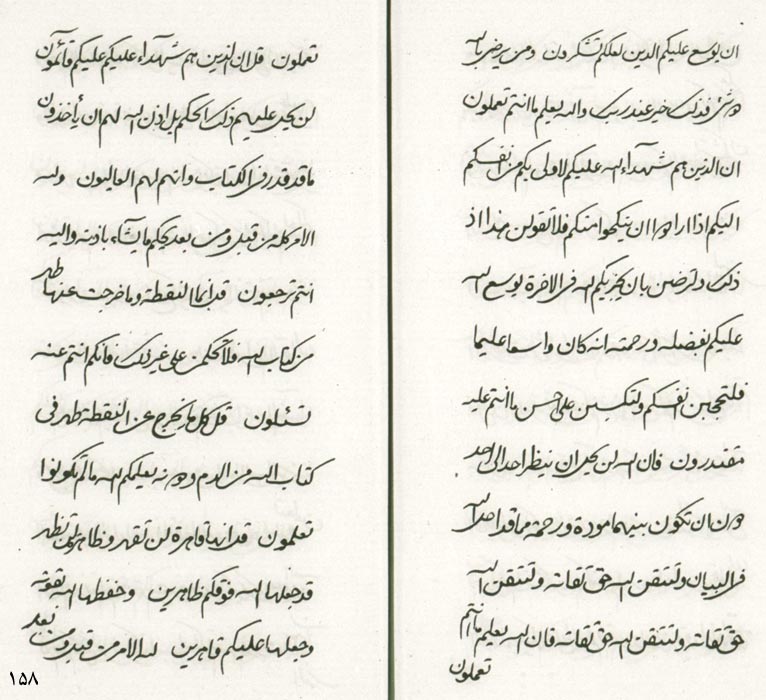 ان يوسع عليكم الدين لعلكم تشكرون ومن يرض بالله
دون ذلك خير عند ربك والله يعلم ما انتم تعملون
ان الذين هم شهداء الله عليكم لاولى بكم من انفسكم
اليكم اذا ارادوا ان ينكحوا منكم فلا تقولن هذا اذ
ذلك ولترضن بان يجزيكم الله فى الاخرة يوسع الله
عليكم بفضله ورحمته انه كان واسعا عليما
فلتحجبن انفسكم ولتكسبن على احسن ما انتم عليه
مقتدرون فان الله لن يحل ان ينظر احد الى احد
دون ان تكون بينهما مودة ورحمة مما قد احل الله
فى البيان ولتتقن الله حق تقاته ولتتقن الله
حق تقاته ولتتقن الله حق تقاته فان الله يعلم ما انتم
تعملون
تعملون قل ان الذين هم شهداء عليكم عليكم قائمون
لن يحل عليهم ذلك الحكم بل اذن الله لهم ان يأخذون
ما قد قدر فى الكتاب وانهم لهم العاليون ولله
الامر كله من قبل ومن بعد يحكم ما يشاء باذنه واليه
انتم ترجعون قد انما النقطة وما خرجت عنها طهر
من كتاب الله فلا تحكمن على غير ذلك فانكم انتم عنه
تسئلون قل كل ما يخرج عن النقطة طهر فى
كتاب الله من الدم ودونه يعلمكم الله ما لم تكونوا
تعلمون قد انها قاهرة لن تقهر وظاهرة لن تظهر
قد جعلها الله فوقكم ظاهرين وحفظها الله بقوته
وجعلها عليكم قاهرين لله الامر من قبل ومن بعد
١٥٨